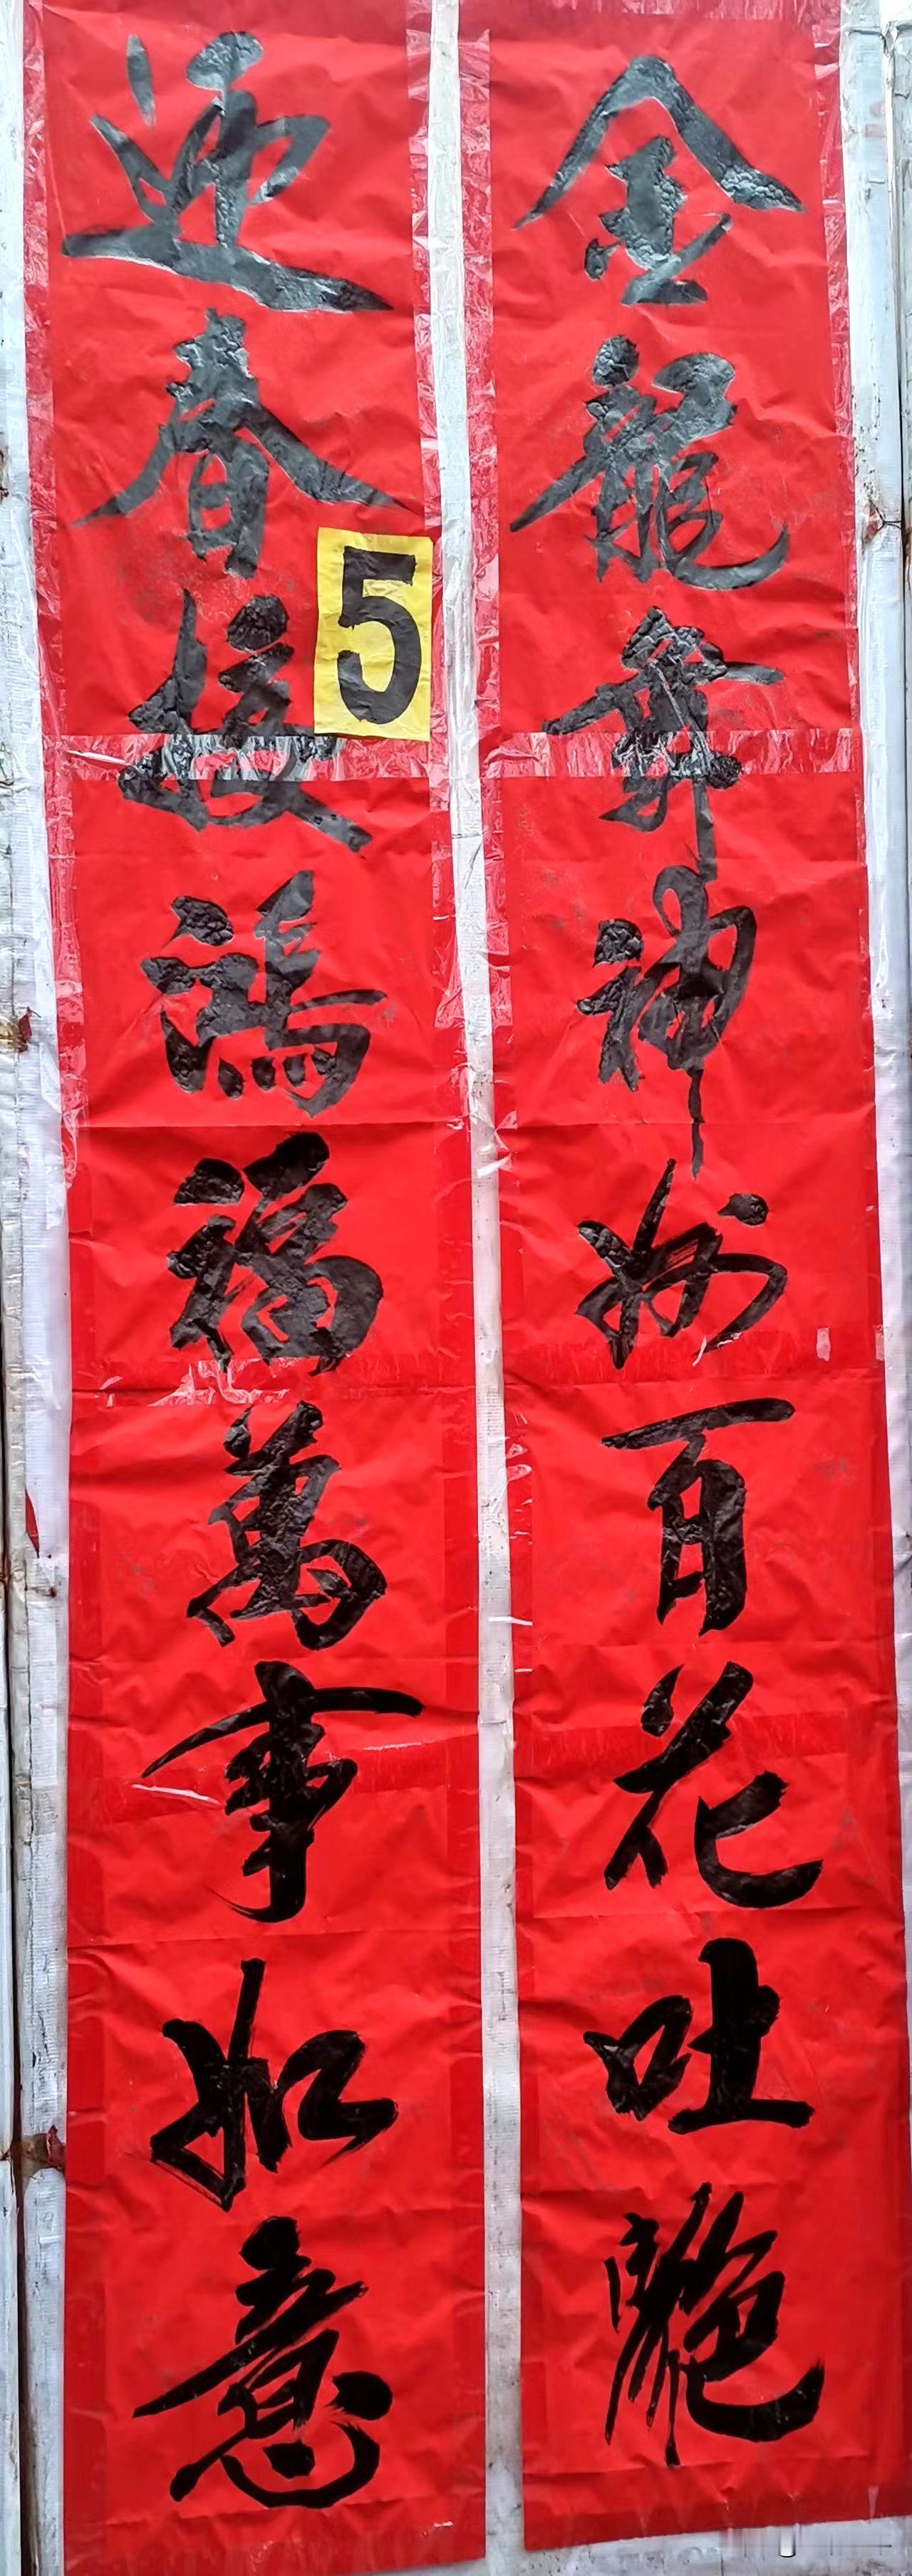 金龍舞神州百花吐艷
迎春接鴻福萬事如意
5